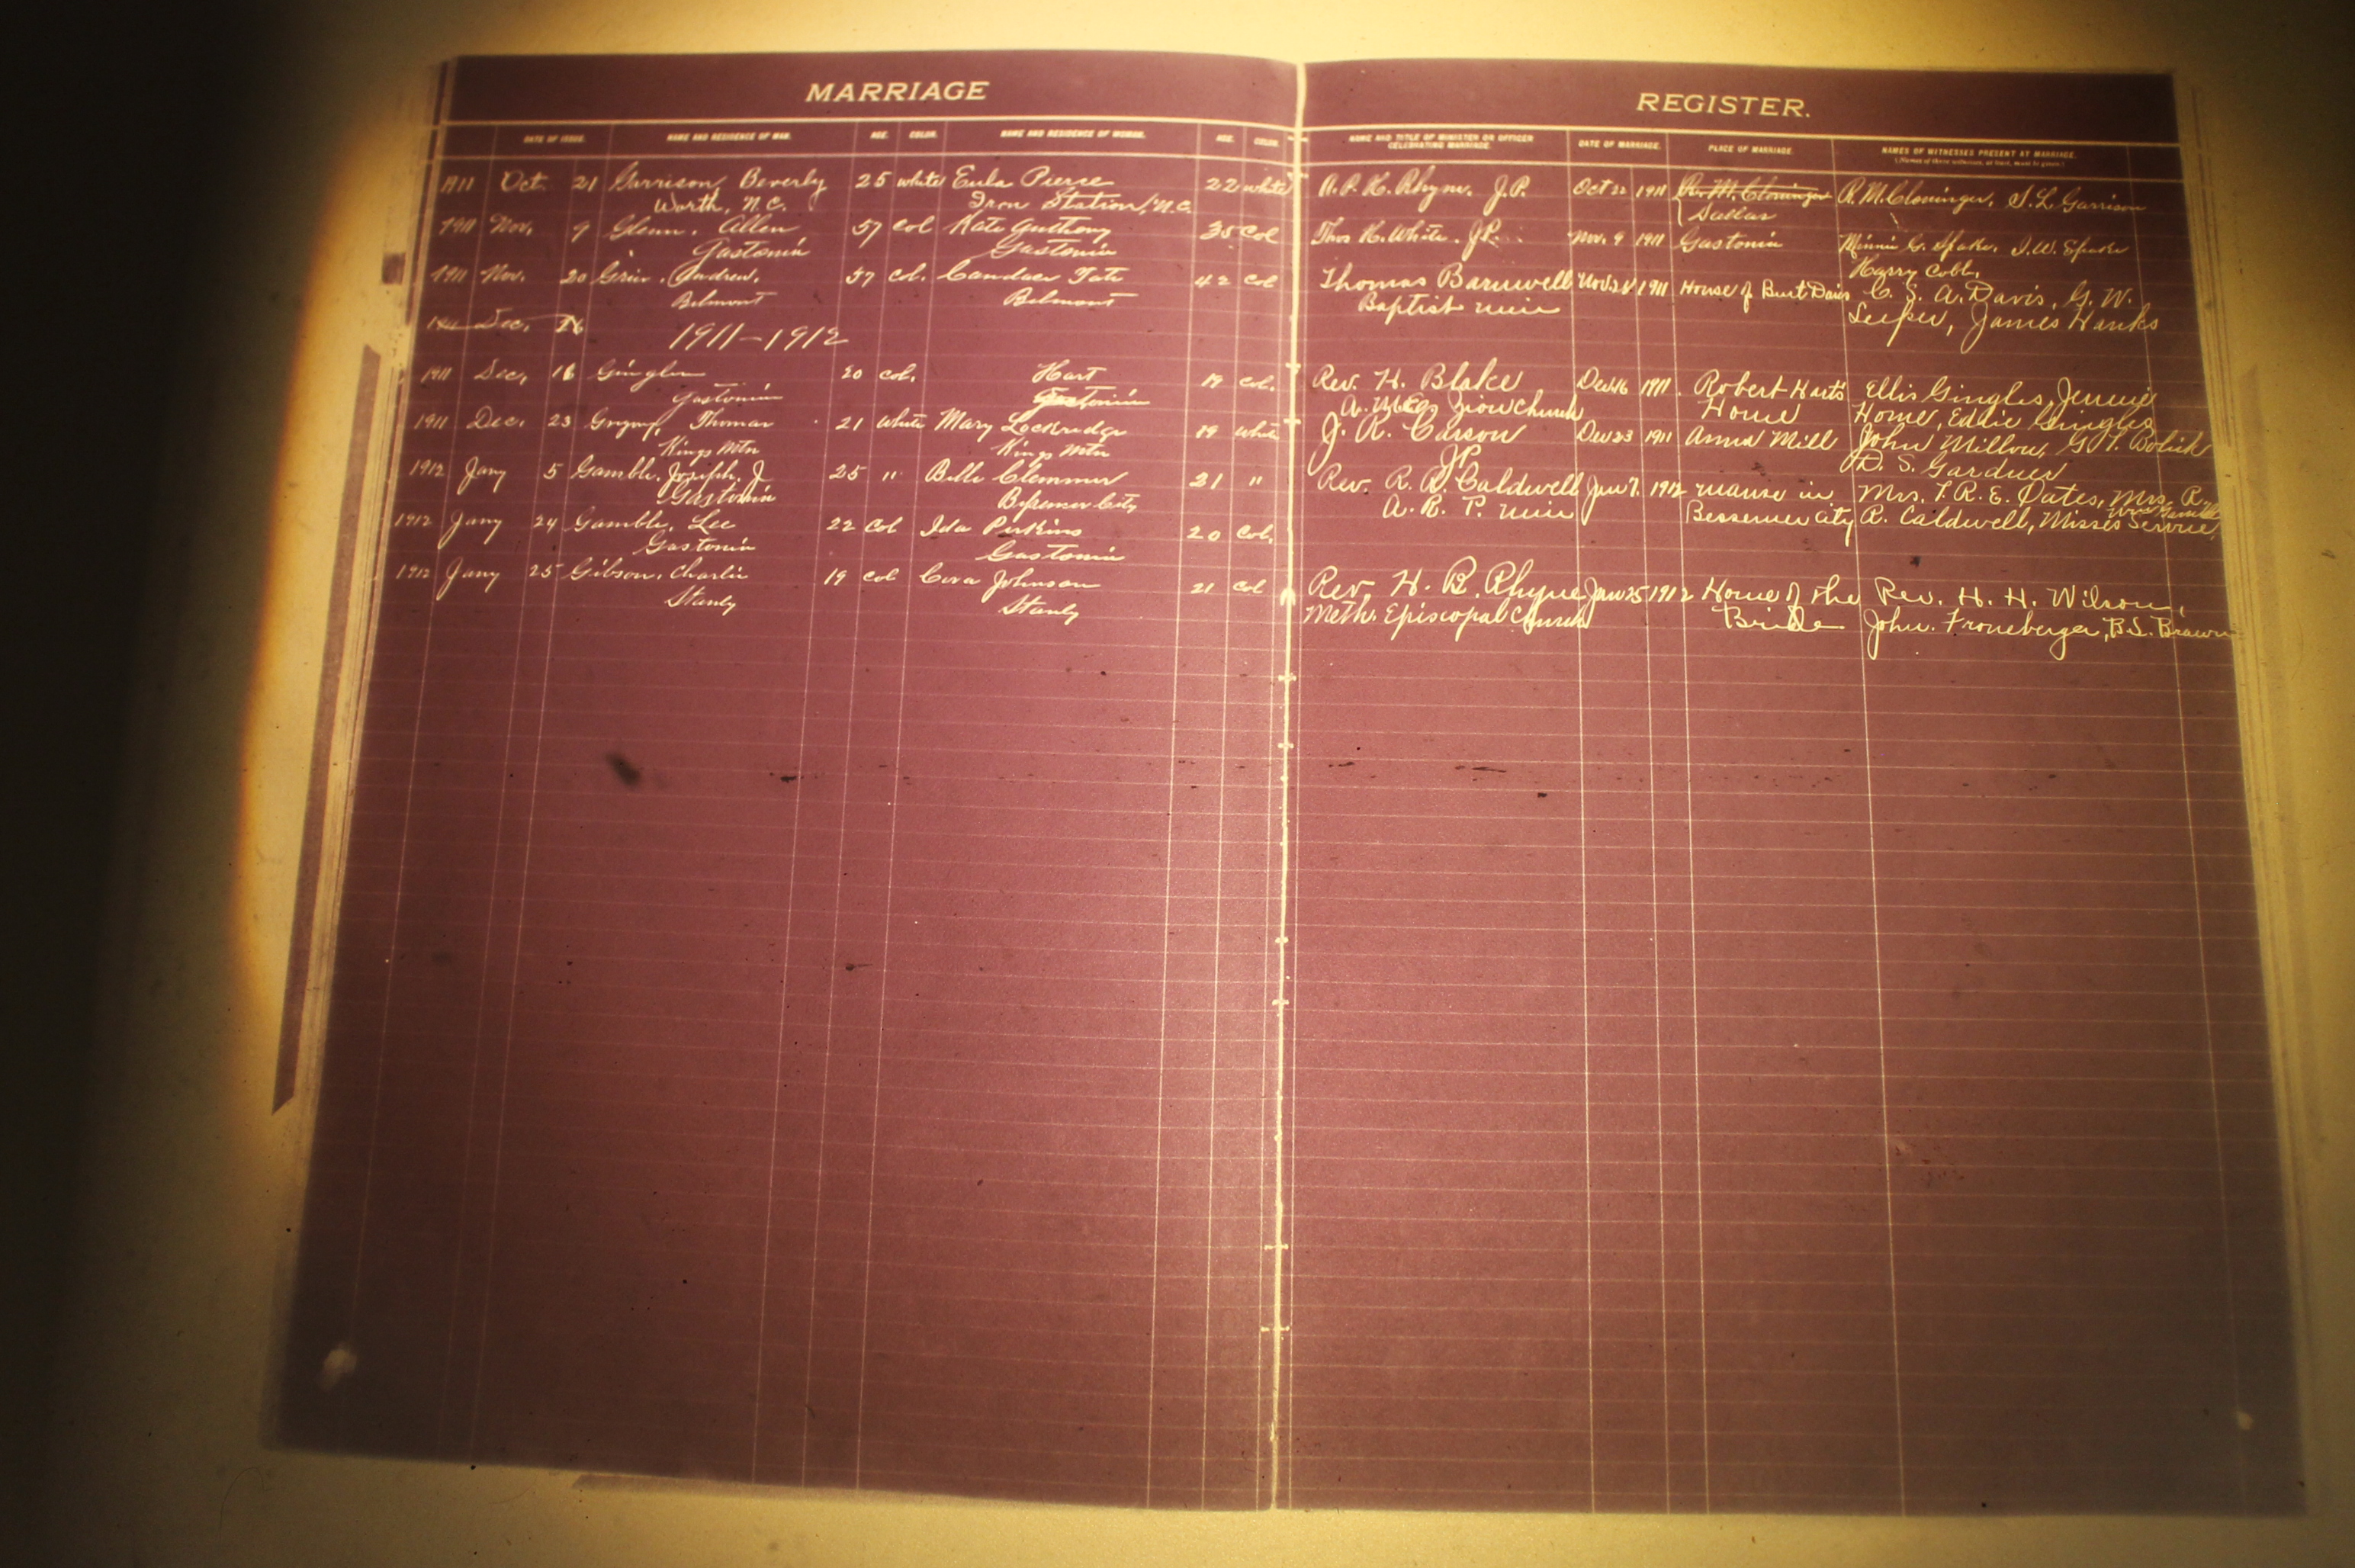 MARRIAGE
REGISTER.
DATE OF ISSUE. NAME AND RESIDENCE OF MAN. AGE. COLOR. NAME AND RESIDENCE OF WOMAN. AGE. COLOR. NAME AND TITLE OF MINISTER OR OFFICER DATE OF MARRIAGE. PLACE OF MARRIAGE. NAMES OF WITNESSES PRESENT AT MARRIAGE.
CELEBRATING MARRIAGE.
1911 Oct. 21 Garrison, Beverly 25 white Eula Pierce 22 white A. P. H. Rhyne. J.P. Oct 22 1911 R. M. Cloninger R. M. Cloninger, S. L. Garrison
Worth, N.C. Iron Station, N.C. Dallas
1911 Nov. 9 Glenn, Allen 57 Col Kate Anthony 35 Col Thos H. White. J.P. Nov. 9 1911 Gastonia Minnie C. Spake, J. W. Spake
Gastonia Gastonia Harry Cobb,
1911 Nov. 20 Andrew, 57 Col. Candace Tate 42 Col Thomas Barnwell Nov. 1911 House of Burt Davis C. S. A. Davis, G. W.
Belmont Belmont Baptist min Leeper, James Hanks
Dec. 16 1911-1912
1911 Dec, 16 Gingles 20 Col. Hart 19 Col. Rev. H. Blake Dec. 16 1911. Robert Hart's Ellis Gingles, Jennie
Gastonia Gastonia Zion Church Home Home, Eddie Gingles
1911 Dec. 23 Thomas 21 White Mary Lockridge 19 White J. R. Carson Dec 23 1911 Anna Mill John Millow, G. T. Bolick
Kings Mtn Kings Mtn JP D. S. Gardner
1912 Jany 5 Gamble, Joseph. J 25 " Belle Clemmer 21 " Rev. R. R. Caldwell Jan 7. 1912 manse in Mrs. T. R. E. Oates, Mrs. R.
Gastonia Bessemer City A. R. P. min Bessemer City R. Caldwell, Misses
1912 Jany 24 Gamble, Lee 22 Col Ida Perkins 20 Col.
Gastonia Gastonia
1912 Jany 25 Gibson, Charlie 19 Col Cora Johnson 21 Col Rev. H. B. Rhyne Jan 25 1912 Home of the Rev. H. H. Wilson,
Stanly Stanly Meth. Episcopal Church Bride John. Froneberger, B.L. Brown